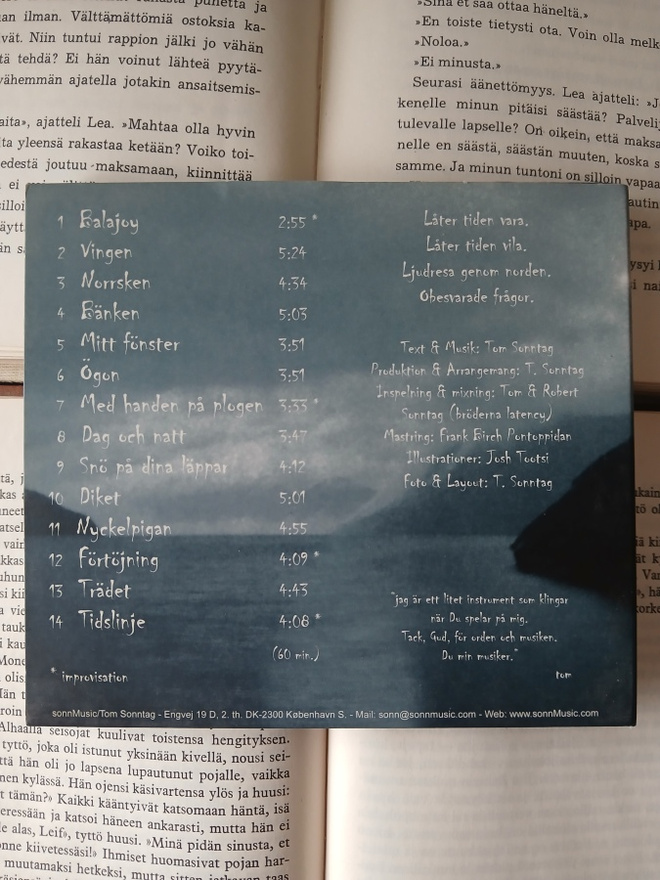 an ilman. Välttämättömiä ostoksia ka-
vät. Niin tuntui rappion jälki jo vähän
tä tehdä? Ei hän voinut lähteä pyytä-
vähemmän ajatella jotakin ansaitsemis-
aita», ajatteli Lea. »Mahtaa olla hyvin
ta yleensä rakastaa ketään? Voiko toi-
edestä joutuu maksamaan, kiinnittää
»Sinä et saa ottaa häneltä.»
»En toiste tietysti ota. Voin olla melk
»Noloa.»
»Ei minusta.»
Seurasi äänettömyys. Lea ajatteli: »J
kenelle minun pitäisi säästää? Palvelij
tulevalle lapselle? On oikein, että maksa
nelle en säästä, säästän muuten, koska s
samme. Ja minun tuntoni on silloin vapaa
1 Balajoy 2:55 *
2 Vingen 5:24
3 Norrsken 4:34
4 Bänken 5:03
5 Mitt fönster 3:51
6 Ögon 3:51
7 Med handen på plogen 3:33 *
8 Dag och natt 3:47
9 Snö på dina läppar 4:12
10 Diket 5:01
11 Nyckelpigan 4:55
12 Förtöjning 4:09 *
13 Trädet 4:43
14 Tidslinje 4:08 *
(60 min.)
* improvisation
Låter tiden vara.
Låter tiden vila.
Ljudresa genom norden.
Obesvarade frågor.
Text & Musik: Tom Sonntag
Produktion & Arrangemang: T. Sonntag
Inspelning & mixning: Tom & Robert
Sonntag (bröderna latency)
Mastring: Frank Birch Pontoppidan
Illustrationer: Josh Tootsi
Foto & Layout: T. Sonntag
"jag är ett litet instrument som klingar
när Du spelar på mig.
Tack, Gud, för orden och musiken.
Du min musiker."
tom
sonnMusic/Tom Sonntag - Engvej 19 D, 2. th. DK-2300 København S. - Mail: sonn@sonnmusic.com - Web: www.sonnMusic.com
Alhaalla seisojat kuulivat toistensa hengityksen.
tyttö, joka oli istunut yksinään kivellä, nousi sei-
ttä hän oli jo lapsena lupautunut pojalle, vaikka
nen kylässä. Hän ojensi käsivartensa ylös ja huusi:
t tämän?» Kaikki kääntyivät katsomaan häntä, isä
eressään ja katsoi häneen ankarasti, mutta hän ei
le alas, Leif», tyttö huusi. »Minä pidän sinusta, et
onne kiivetessäsi!» Ihmiset huomasivat pojan har-
muutamaksi hetkeksi, mutta sitten